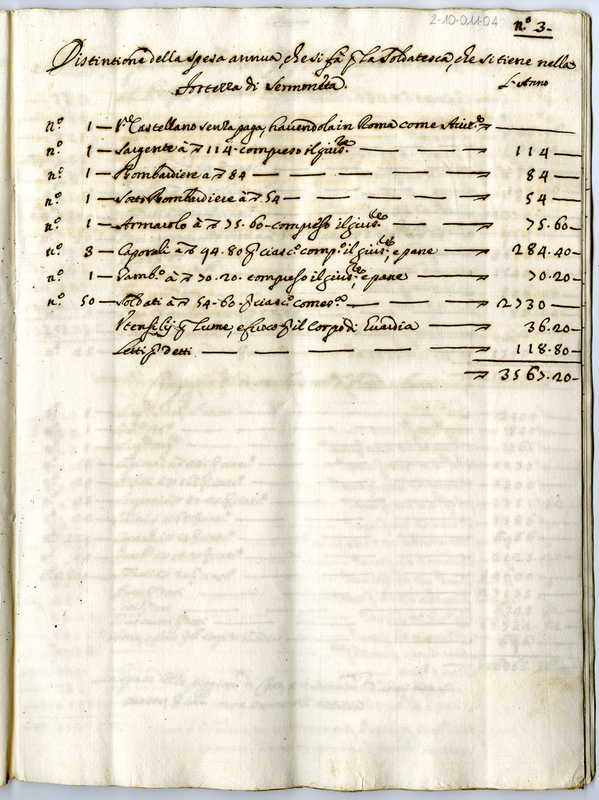 2-10-011-04
n.º 3-
Distintione della spesa annua, che si fà p La Soldatesca, che si tiene nella
fortezza di Sermoneta.
L'Anno
nº. 1 — V.e Castellano senza paga, havendola in Roma come
nº. 1 — Sargente à 114- compreso il 114 —
nº. 1 — Bombardiere à 84 84 —
nº. 1 — Sotto Bombardiere à 54 54 —
nº. 1 — Armarolo à 75.60- compreso il 75.60-
nº. 3 — Caporali à 94.80 p ciasc.º comp.º il e pane 284.40-
nº. 1 — Tamb.º à 70.20- compreso il e pane 70.20-
nº. 50 — Soldati à 54-60 p ciasc.º come s.ª 2730 —
Vtensilij p Lume, e fuoco p il Corpo di Guardia 36.20-
Letti p detti 118.80-
3567.20-